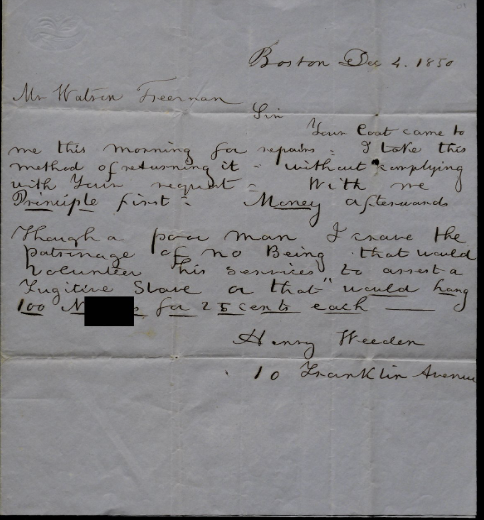 Boston Dec 4. 1850
Mr Watson Freeman
Sir
Your Coat came to
me this morning for repairs - I take this
method of returning it - without complying
with Your request - With me
Principle first - Money afterwards
Though a poor man I crave the
patrinage of no Being that would
Volunteer his services to arrest a
Fugitive Slave or that "would hang
100 N s for 25 cents each
Henry Weeden
10 Franklin Avenue